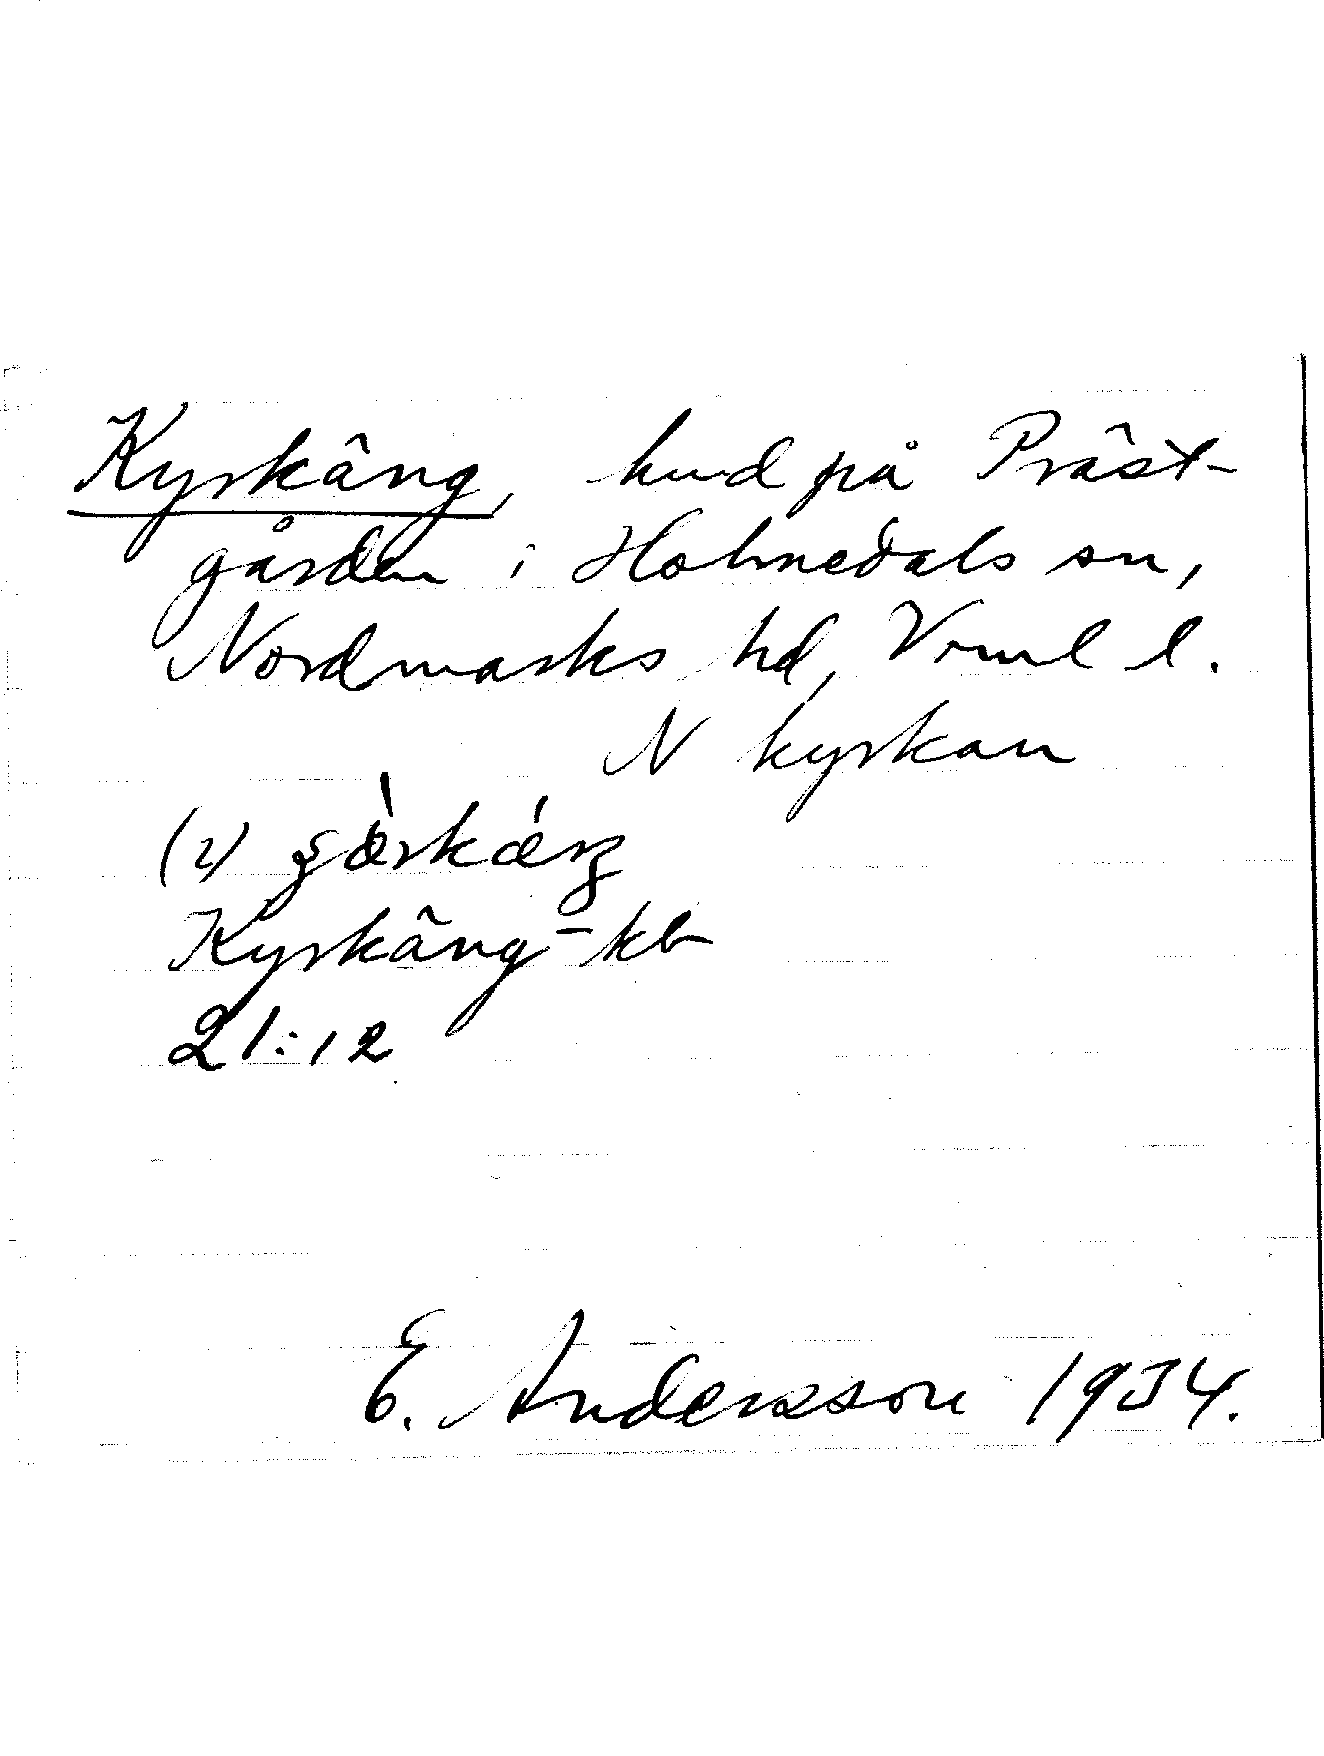 Kyrkäng, hmd på Präst-
gården i Holmedals sn,
Nordmarks hd, Vrml l.
N kyrkan
(2)
Kyrkäng - kb
21:12
E. Andersson 1934.